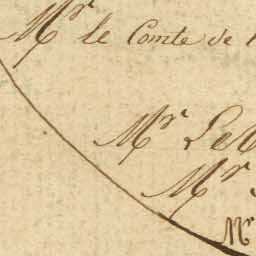 Mr le Comte de
Mr
Mr
Mr